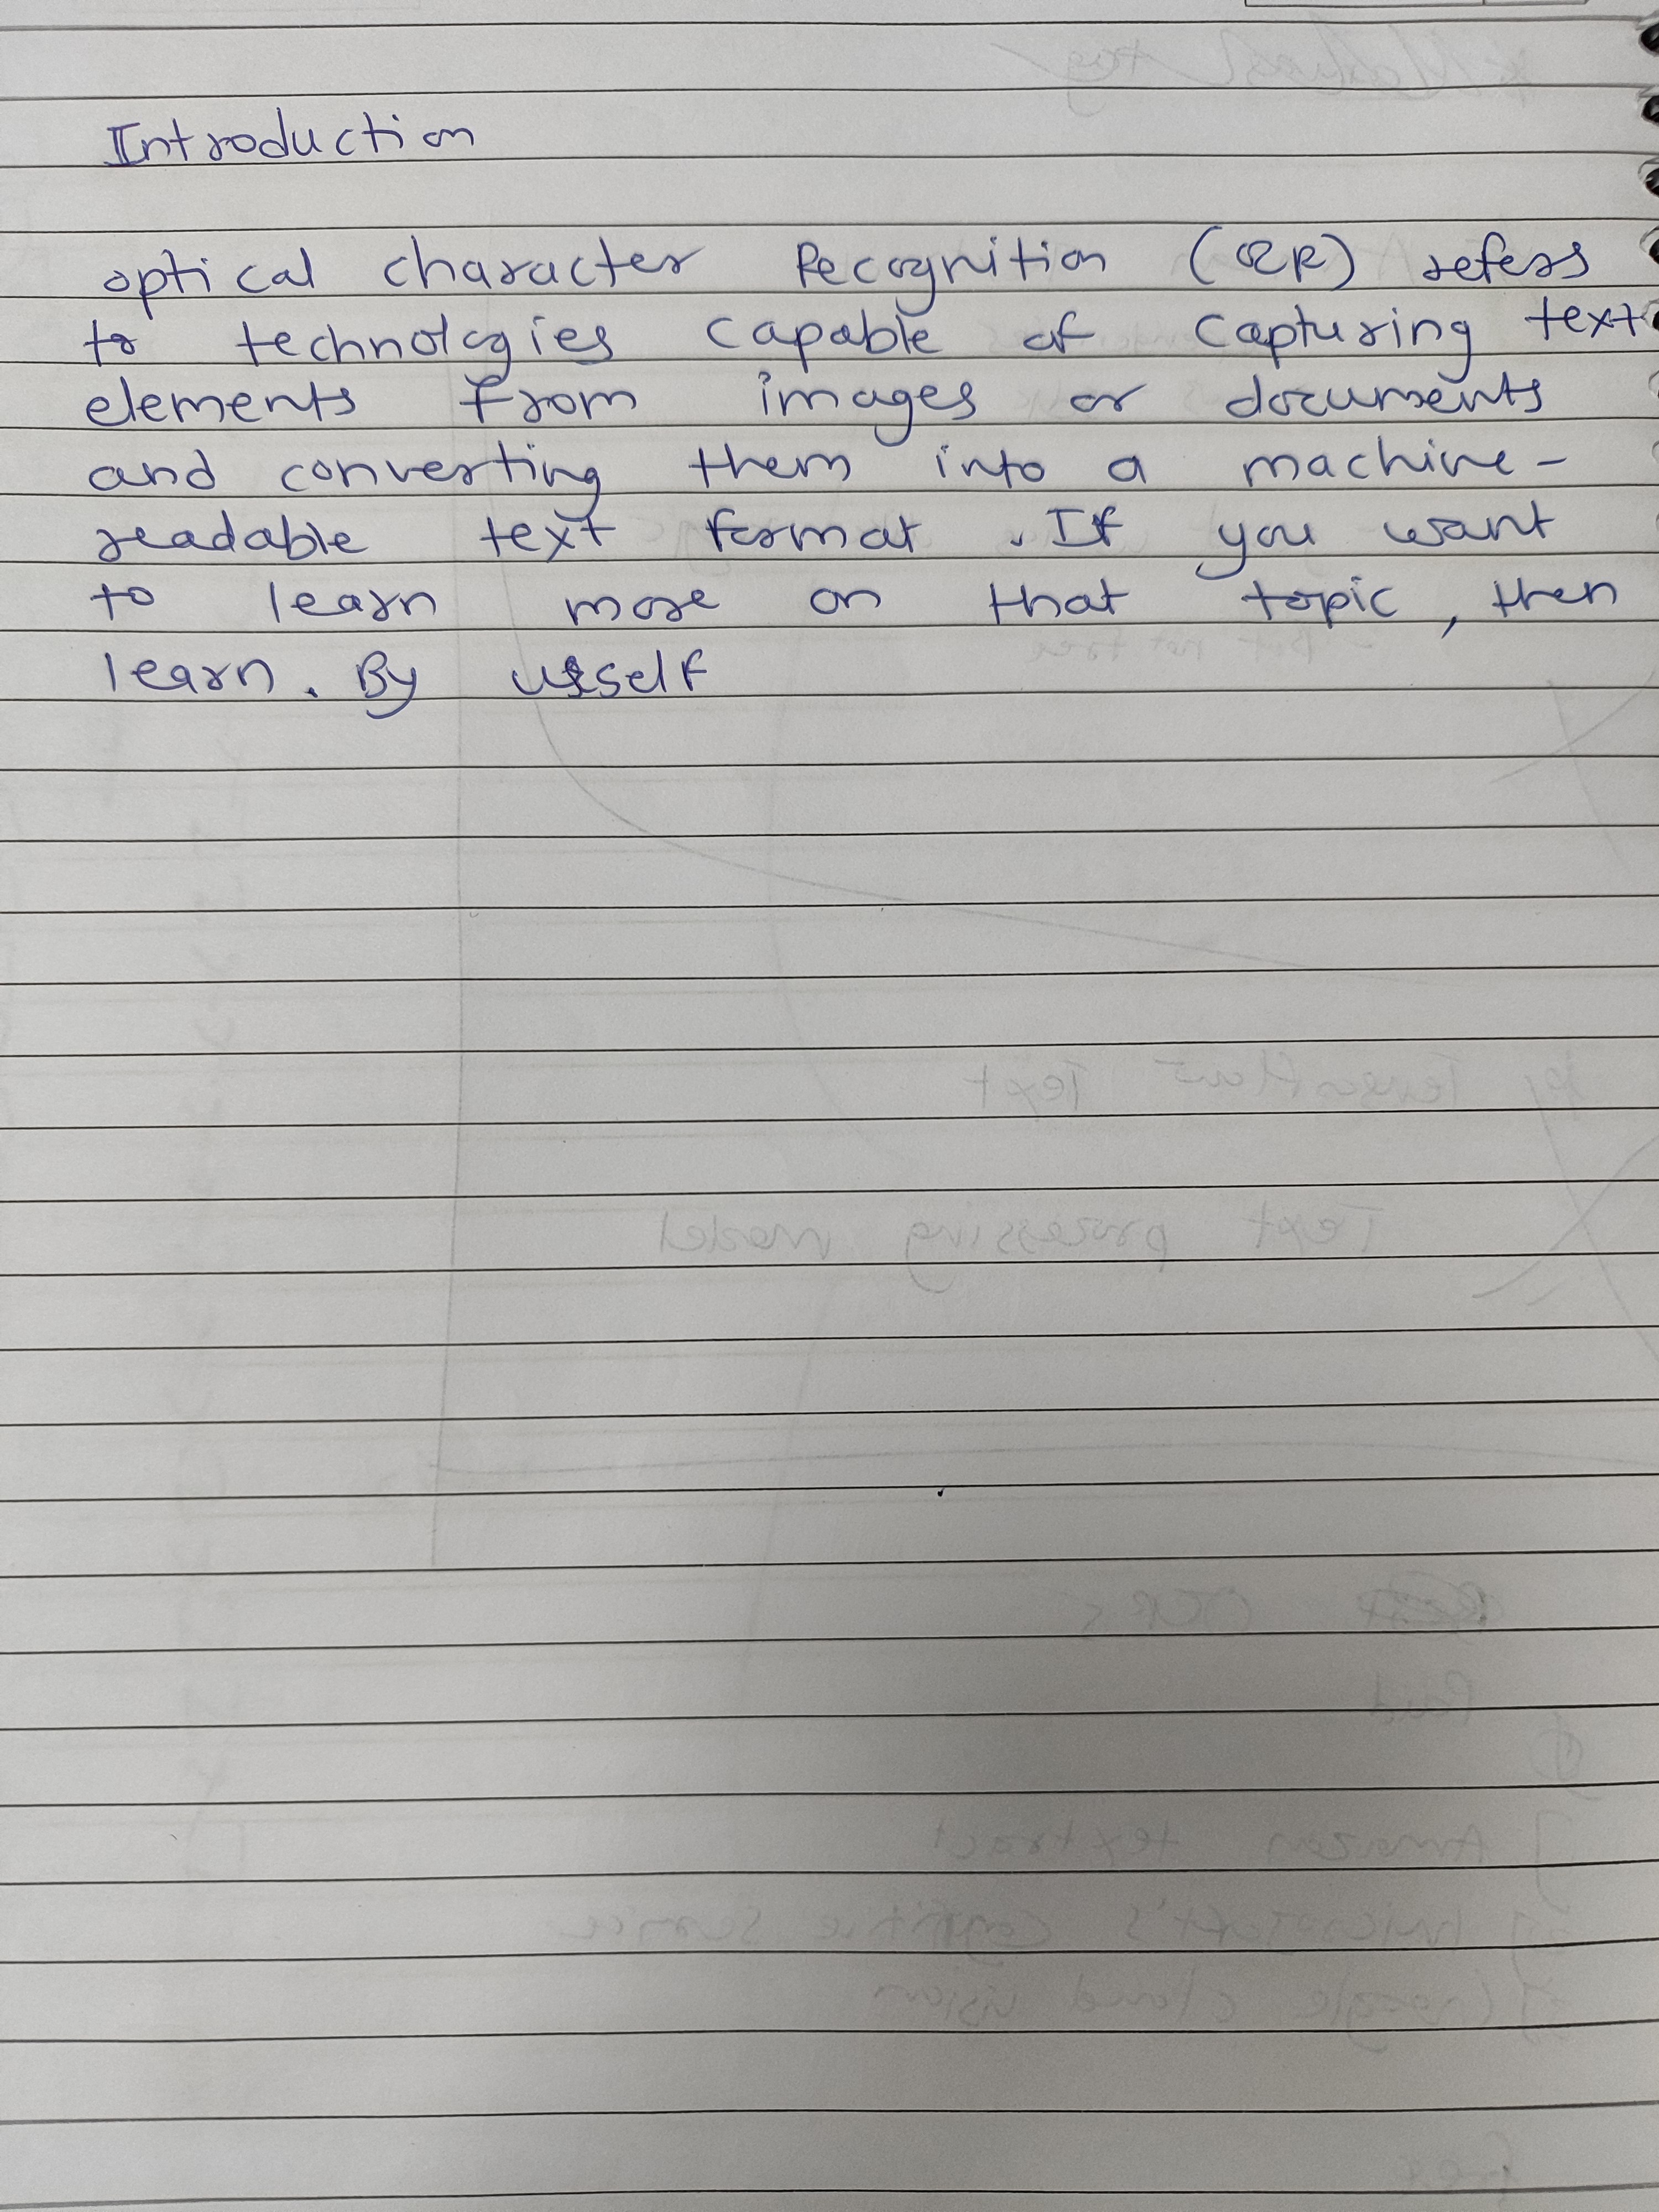 Introduction
optical character Recognition (OCR) refers
to technologies capable of capturing text
elements from images or documents
and converting them into a machine-
readable text format. If you want
to learn more on that topic, then
learn. By urself